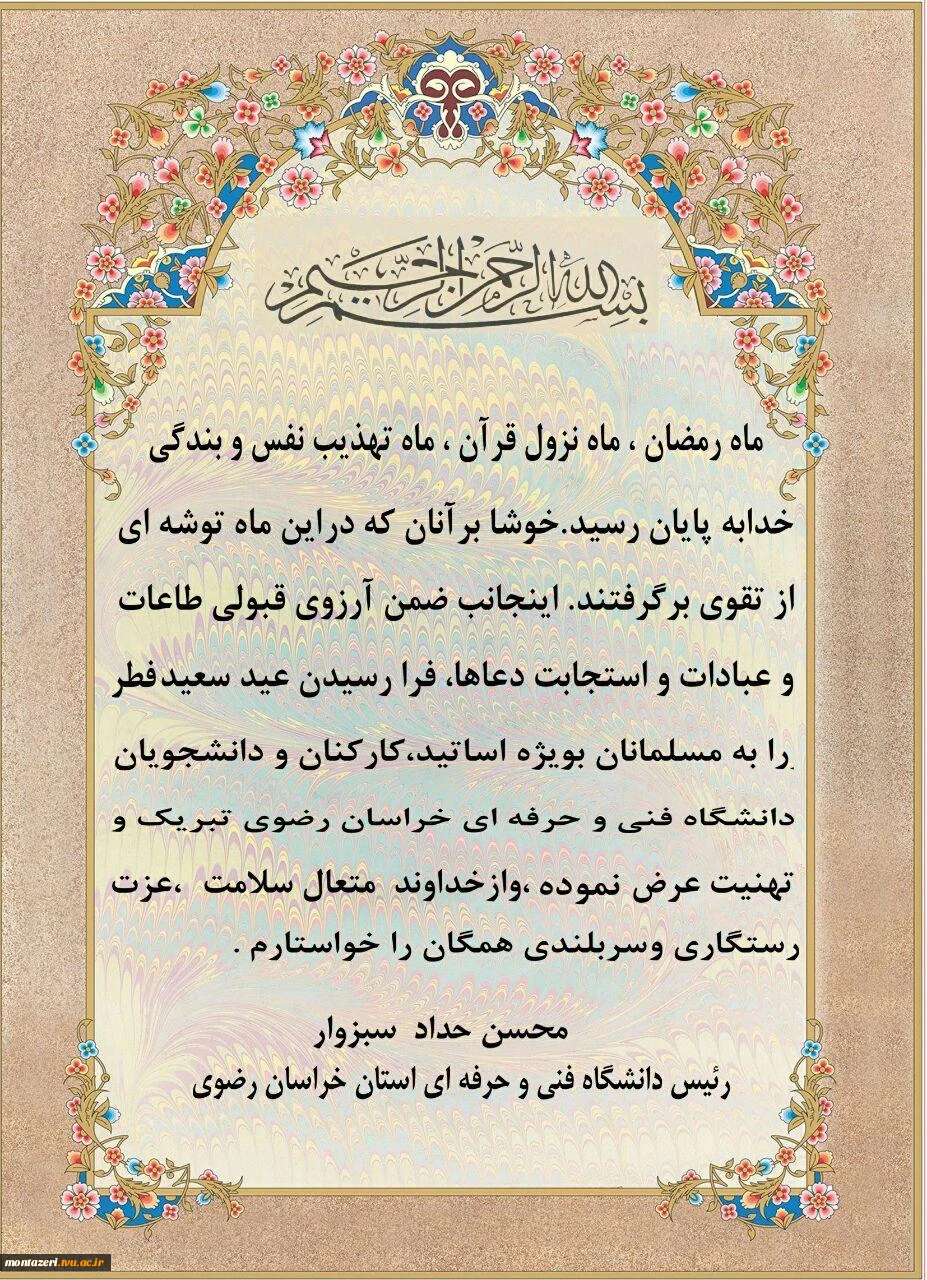 بسم الله الرحمن الرحیم
ماه رمضان ، ماه نزول قرآن ، ماه تهذیب نفس و بندگی
خدابه پایان رسید.خوشا برآنان که دراین ماه توشه ای
از تقوی برگرفتند. اینجانب ضمن آرزوی قبولی طاعات
و عبادات و استجابت دعاها، فرا رسیدن عید سعیدفطر
را به مسلمانان بویژه اساتید،کارکنان و دانشجویان
دانشگاه فنی و حرفه ای خراسان رضوی تبریک و
تهنیت عرض نموده ،وازخداوند متعال سلامت ،عزت
رستگاری وسربلندی همگان را خواستارم .
محسن حداد سبزوار
رئیس دانشگاه فنی و حرفه ای استان خراسان رضوی
montazeri.tvu.ac.ir